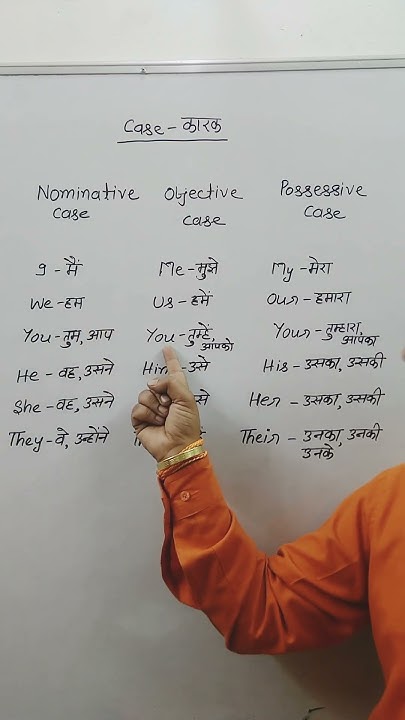 Case - कारक
Nominative Case
Objective Case
Possessive Case
I - मैं
Me - मुझे
My - मेरा
We - हम
Us - हमें
Our - हमारा
You - तुम, आप
You - तुम्हें, आपको
Your - तुम्हारा, आपका
He - वह, उसने
Him - उसे
His - उसका, उसकी
She - वह, उसने
से
Her - उसका, उसकी
They - वे, उन्होंने
Their - उनका, उनकी
उनके